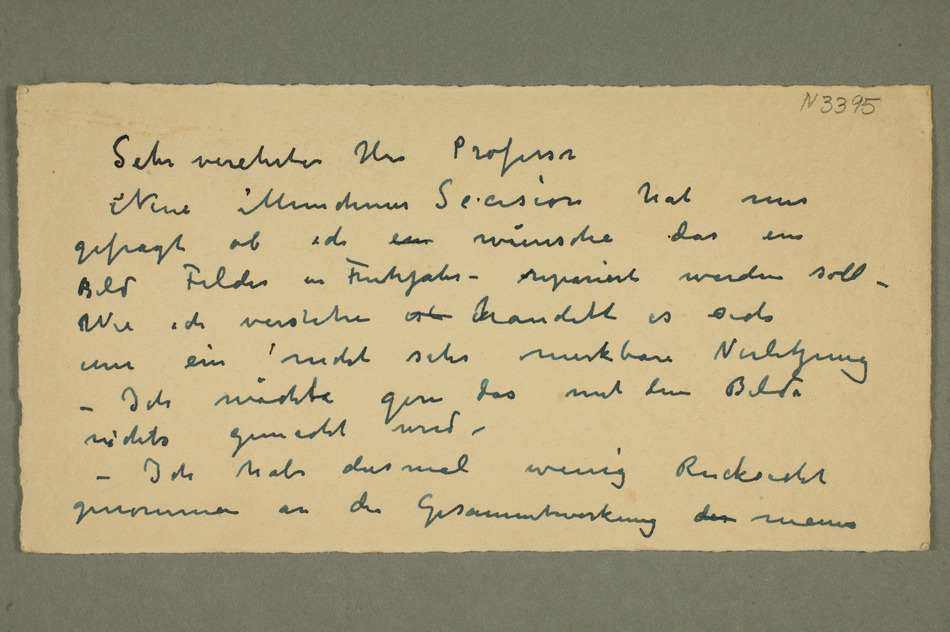 N3395
Sehr verehrter Herr Professor
Neue Münchener Secesion hat mir
gefragt ob ich ein wünsche das ein
Bild Felder in Fruhjahr – repariert werden soll –
Wie ich verstehe ist handelt es sich
um ein nicht sehr merkbare Verletzung
– Ich möchte gern das mit dem Bilde
nichts gemacht wird –
– Ich habe diesmal wenig Rücksicht
genommen an die Gesammtwirkung der meine